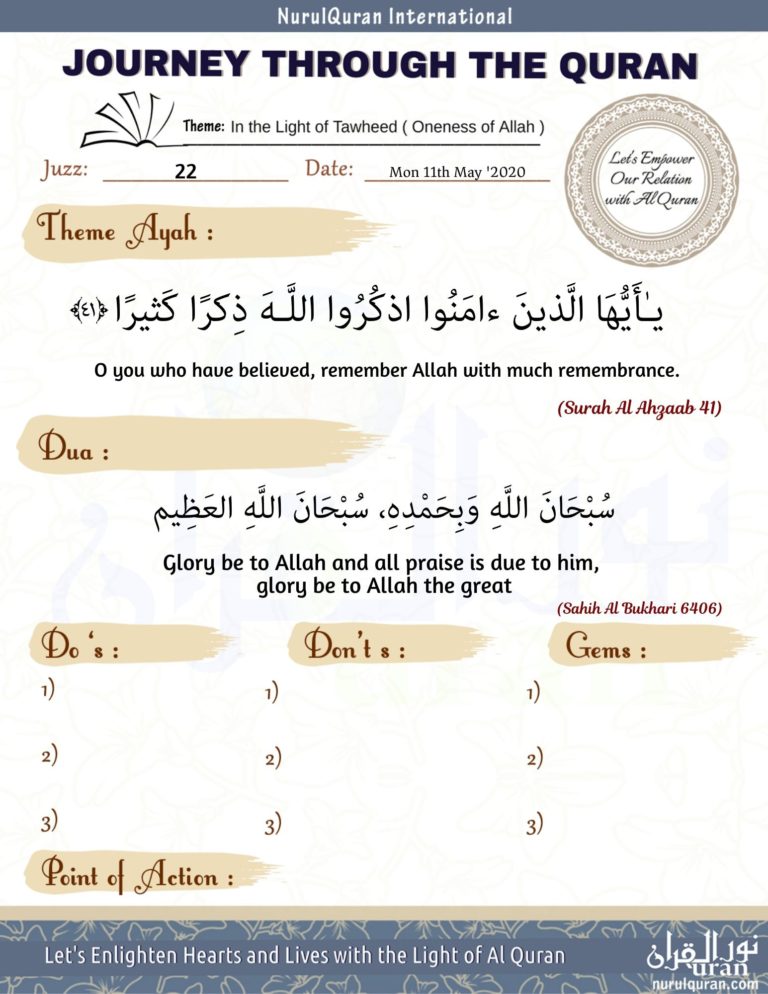 NurulQuran International
JOURNEY THROUGH THE QURAN
Theme: In the Light of Tawheed ( Oneness of Allah )
Let's Empower
Our Relation
with Al Quran
Juzz: 22 Date: Mon 11th May '2020
Theme Ayah :
يـٰأَيُّهَا الَّذينَ ءامَنُوا اذكُرُوا اللَّـهَ ذِكرًا كَثيرًا ﴿٤١﴾
O you who have believed, remember Allah with much remembrance.
(Surah Al Ahzaab 41)
Dua :
سُبْحَانَ اللَّهِ وَبِحَمْدِهِ، سُبْحَانَ اللَّهِ العَظِيم
Glory be to Allah and all praise is due to him,
glory be to Allah the great
(Sahih Al Bukhari 6406)
Do 's : Don't s : Gems :
1) 1) 1)
2) 2) 2)
3) 3) 3)
Point of Action :
Let's Enlighten Hearts and Lives with the Light of Al Quran
نور القرآن
uran
nurulquran.com